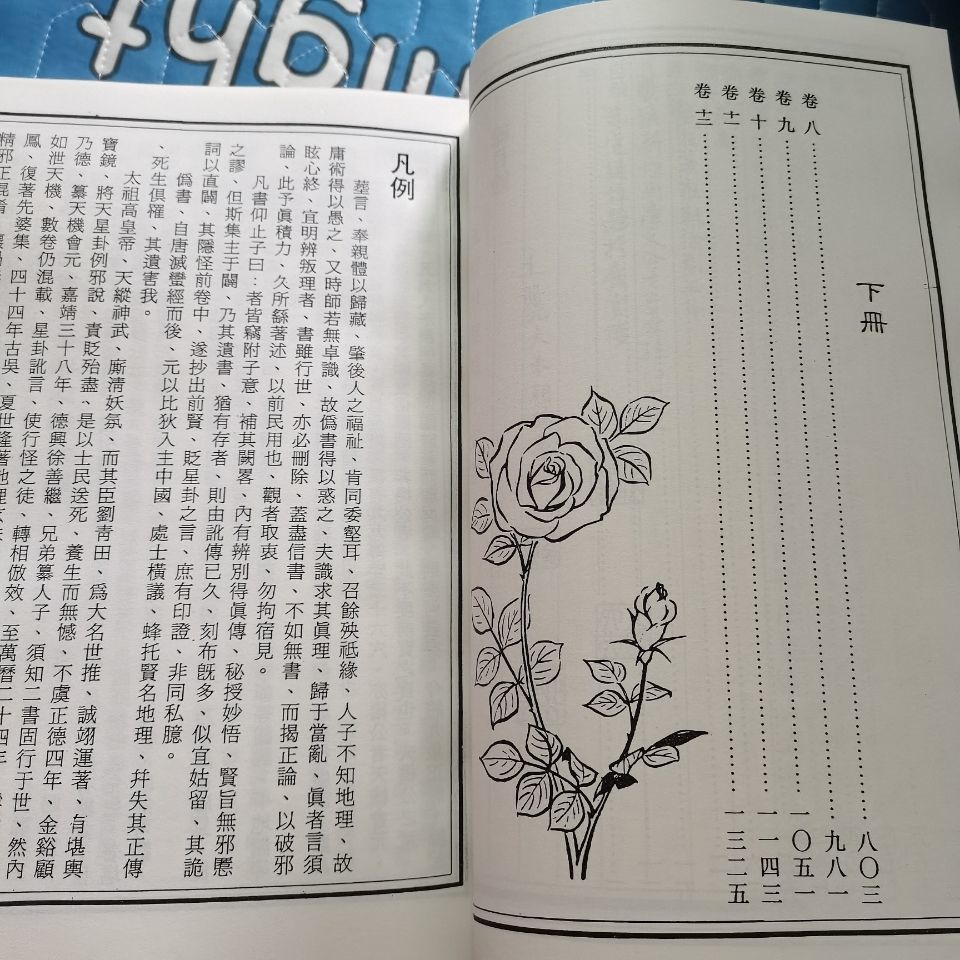 下冊
卷八……八〇三
卷九……九八一
卷十……一〇五一
卷十一……一一四三
卷十二……一三二五
凡例
塟言、奉親體以歸藏、肇後人之福祉、肯同委壑耳、召餘殃祗緣、人子不知地理、故
庸術得以愚之、又時師若無卓識、故僞書得以惑之、夫識求其眞理、歸于當亂、眞者言須
眩心終、宜明辨叛理者、書雖行世、亦必刪除、蓋盡信書、不如無書、而揭正論、以破邪
論、此予眞積力、久所繇著述、以前民用也、觀者取衷、勿拘宿見。
凡書仰止子曰：者皆竊附子意、補其闕畧、內有辨別得眞傳、秘授妙悟、賢旨無邪慝
之謬、但斯集主于闢、乃其遺書、猶有存者、則由訛傳已久、刻布旣多、似宜姑留、其詭
詞以直闢、其隱怪前卷中、遂抄出前賢、貶星卦之言、庶有印證、非同私臆。
僞書、自唐滅蠻經而後、元以比狄入主中國、處士橫議、蜂托賢名地理、幷失其正傳
、死生俱罹、其遺害我。
太祖高皇帝、天縱神武、廝淸妖氛、而其臣劉靑田、爲大名世推、誠翊運著、有堪輿
寶鏡、將天星卦例邪說、責貶殆盡、是以士民送死、養生而無憾、不虞正德四年、金谿顧
乃德、纂天機會元、嘉靖三十八年、德興徐善繼、兄弟纂人子、須知二書固行于世、然內
如泄天機、數卷仍混載、星卦訛言、使行怪之徒、轉相倣效、至萬曆二十四年
鳳、復著先婆集、四十四年古吳、夏世隆著地理
精邪正混肴